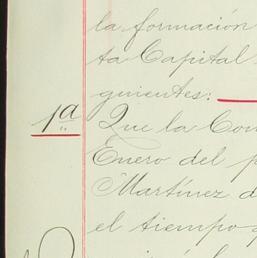 la formación
ta Capital
guientes:
1ª Que la Com
Enero del p
Martínez d
el tiempo